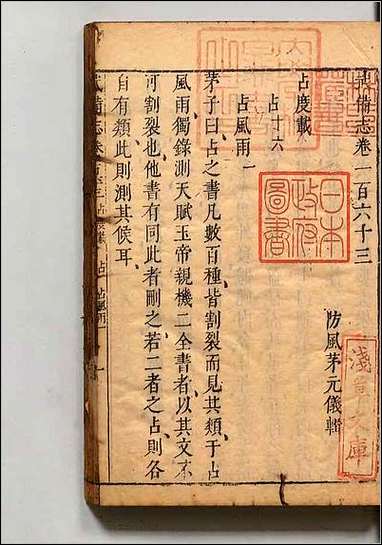 武備志卷一百六十三
防風茅元儀輯
占度載
占十六
占風雨一
茅子曰占之書凡數百種皆割裂而見其類于占
風雨獨錄測天賦玉帝親機二全書者以其文不
可割裂也他書有同此者刪之若二者之占則各
自有類此則測其候耳
日本
政府
圖書
淺草文庫